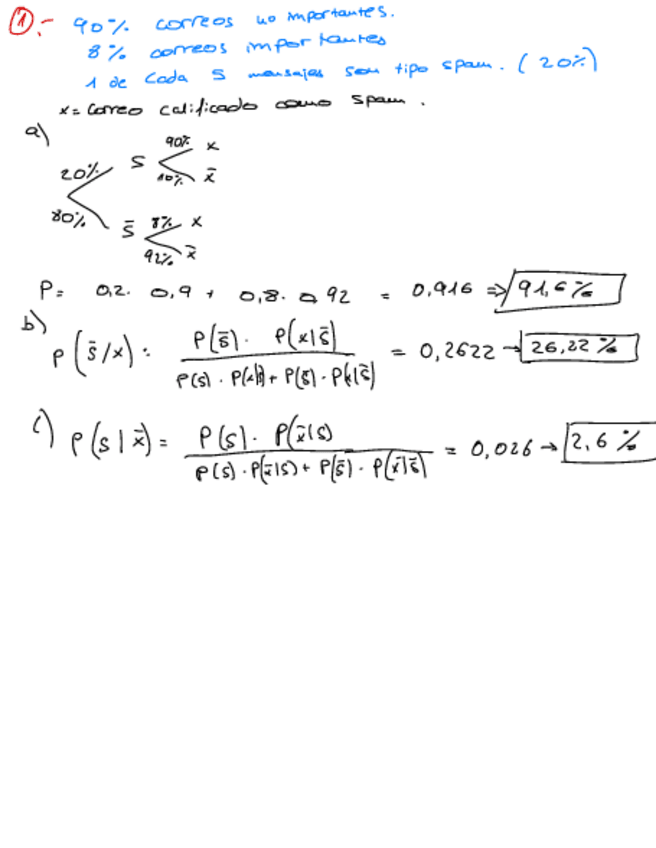 ①.- 90% correos no importantes.
8% correos importantes
1 de cada 5 mensajes son tipo spam. (20%)
x = correo calificado como spam.
a)
90% x
20% S
10% x̄
80% S̄ 8% x
92% x̄
P = 0,2 · 0,9 + 0,8 · 0,92 = 0,916 ⇒ 91,6%
b)
P(s̄/x) : P(s̄) · P(x|s̄) / P(s) · P(x|s) + P(s̄) · P(x|s̄) = 0,2622 → 26,22%
c) P(s|x̄) = P(s) · P(x̄|s) / P(s) · P(x̄|s) + P(s̄) · P(x̄|s̄) = 0,026 → 2,6%